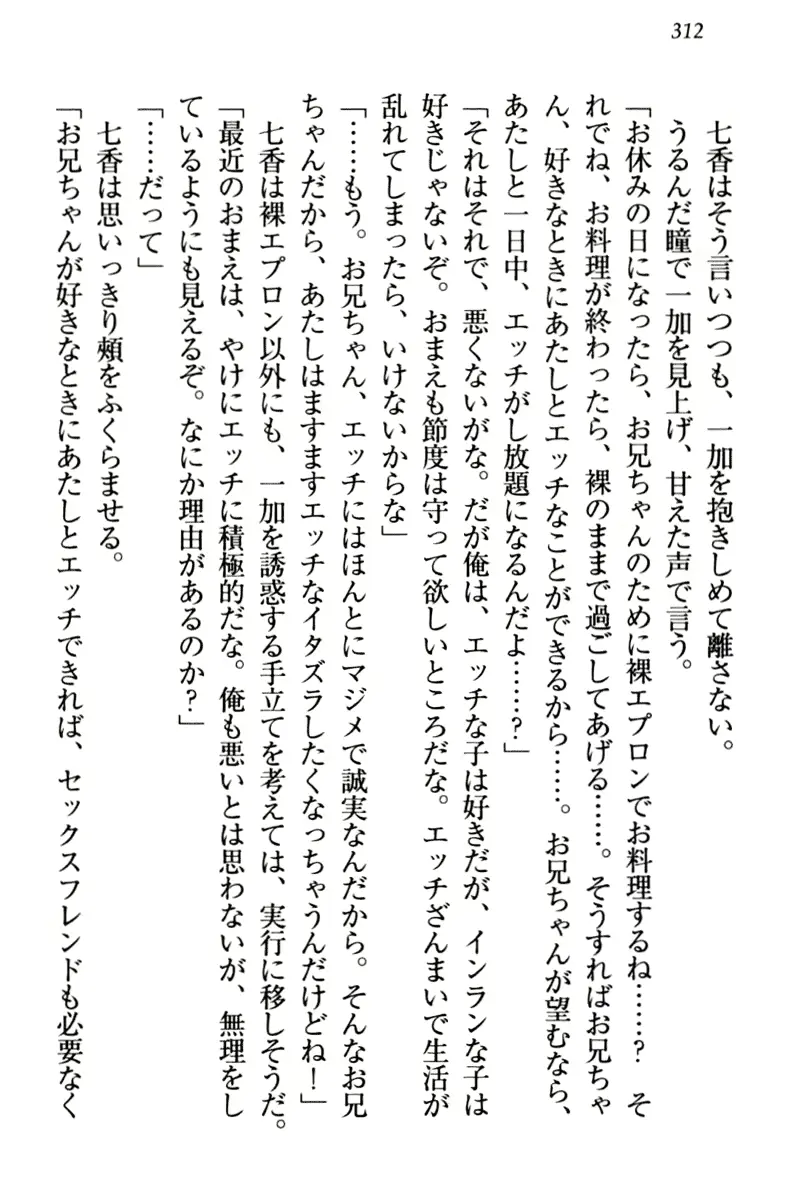 312
七香はそう言いつつも、一加を抱きしめて離さない。
うるんだ瞳で一加を見上げ、甘えた声で言う。
「お休みの日になったら、お兄ちゃんのために裸エプロンでお料理するね……？　そ
れでね、お料理が終わったら、裸のままで過ごしてあげる……。そうすればお兄ちゃ
ん、好きなときにあたしとエッチなことができるから……。お兄ちゃんが望むなら、
あたしと一日中、エッチがし放題になるんだよ……？」
「それはそれで、悪くないがな。だが俺は、エッチな子は好きだが、インランな子は
好きじゃないぞ。おまえも節度は守って欲しいところだな。エッチざんまいで生活が
乱れてしまったら、いけないからな」
「……もう。お兄ちゃん、エッチにはほんとにマジメで誠実なんだから。そんなお兄
ちゃんだから、あたしはますますエッチなイタズラしたくなっちゃうんだけどね！」
七香は裸エプロン以外にも、一加を誘惑する手立てを考えては、実行に移しそうだ。
「最近のおまえは、やけにエッチに積極的だな。俺も悪いとは思わないが、無理をし
ているようにも見えるぞ。なにか理由があるのか？」
「……だって」
七香は思いっきり頬をふくらませる。
「お兄ちゃんが好きなときにあたしとエッチできれば、セックスフレンドも必要なく